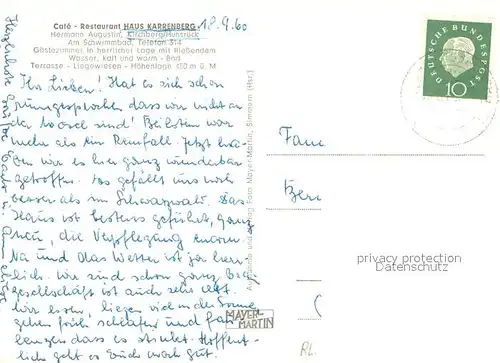 Café - Restaurant HAUS KARRENBERG 18.9.60
Hermann Augustin, Kirchberg/Hunsrück
Am Schwimmbad, Telefon 314
Gästezimmer in herrlicher Lage mit fließendem
Wasser, kalt und warm - Bad
Terrasse - Liegewiesen - Höhenlage 450 m ü. M
Ihr Lieben! Hat es sich schon
rumgesprochen dass wir nicht an
der Mosel sind! Beilstein war
mehr als ein Reinfall. Jetzt
wir es hier ganz wunderbar
getroffen. Es gefällt uns noch
besser als im Schwarzwald. Das
Haus ist bestens geführt, ganz
neu, die Verpflegung enorm.
Na und das Wetter ist ja herr-
lich. Wir sind schon ganz
gesellschaft ist auch sehr nett.
Wir essen, liegen viel in der Sonne
gehen früh schlafen und
dass es staubt. Hoffent-
lich geht es Euch auch gut.
Herzlichste Grüße
DEUTSCHE BUNDESPOST
10
Fam
privacy protection
Datenschutz
MAYER-
MARTIN
Foto Mayer-Martin, Simmern (Hsr.)